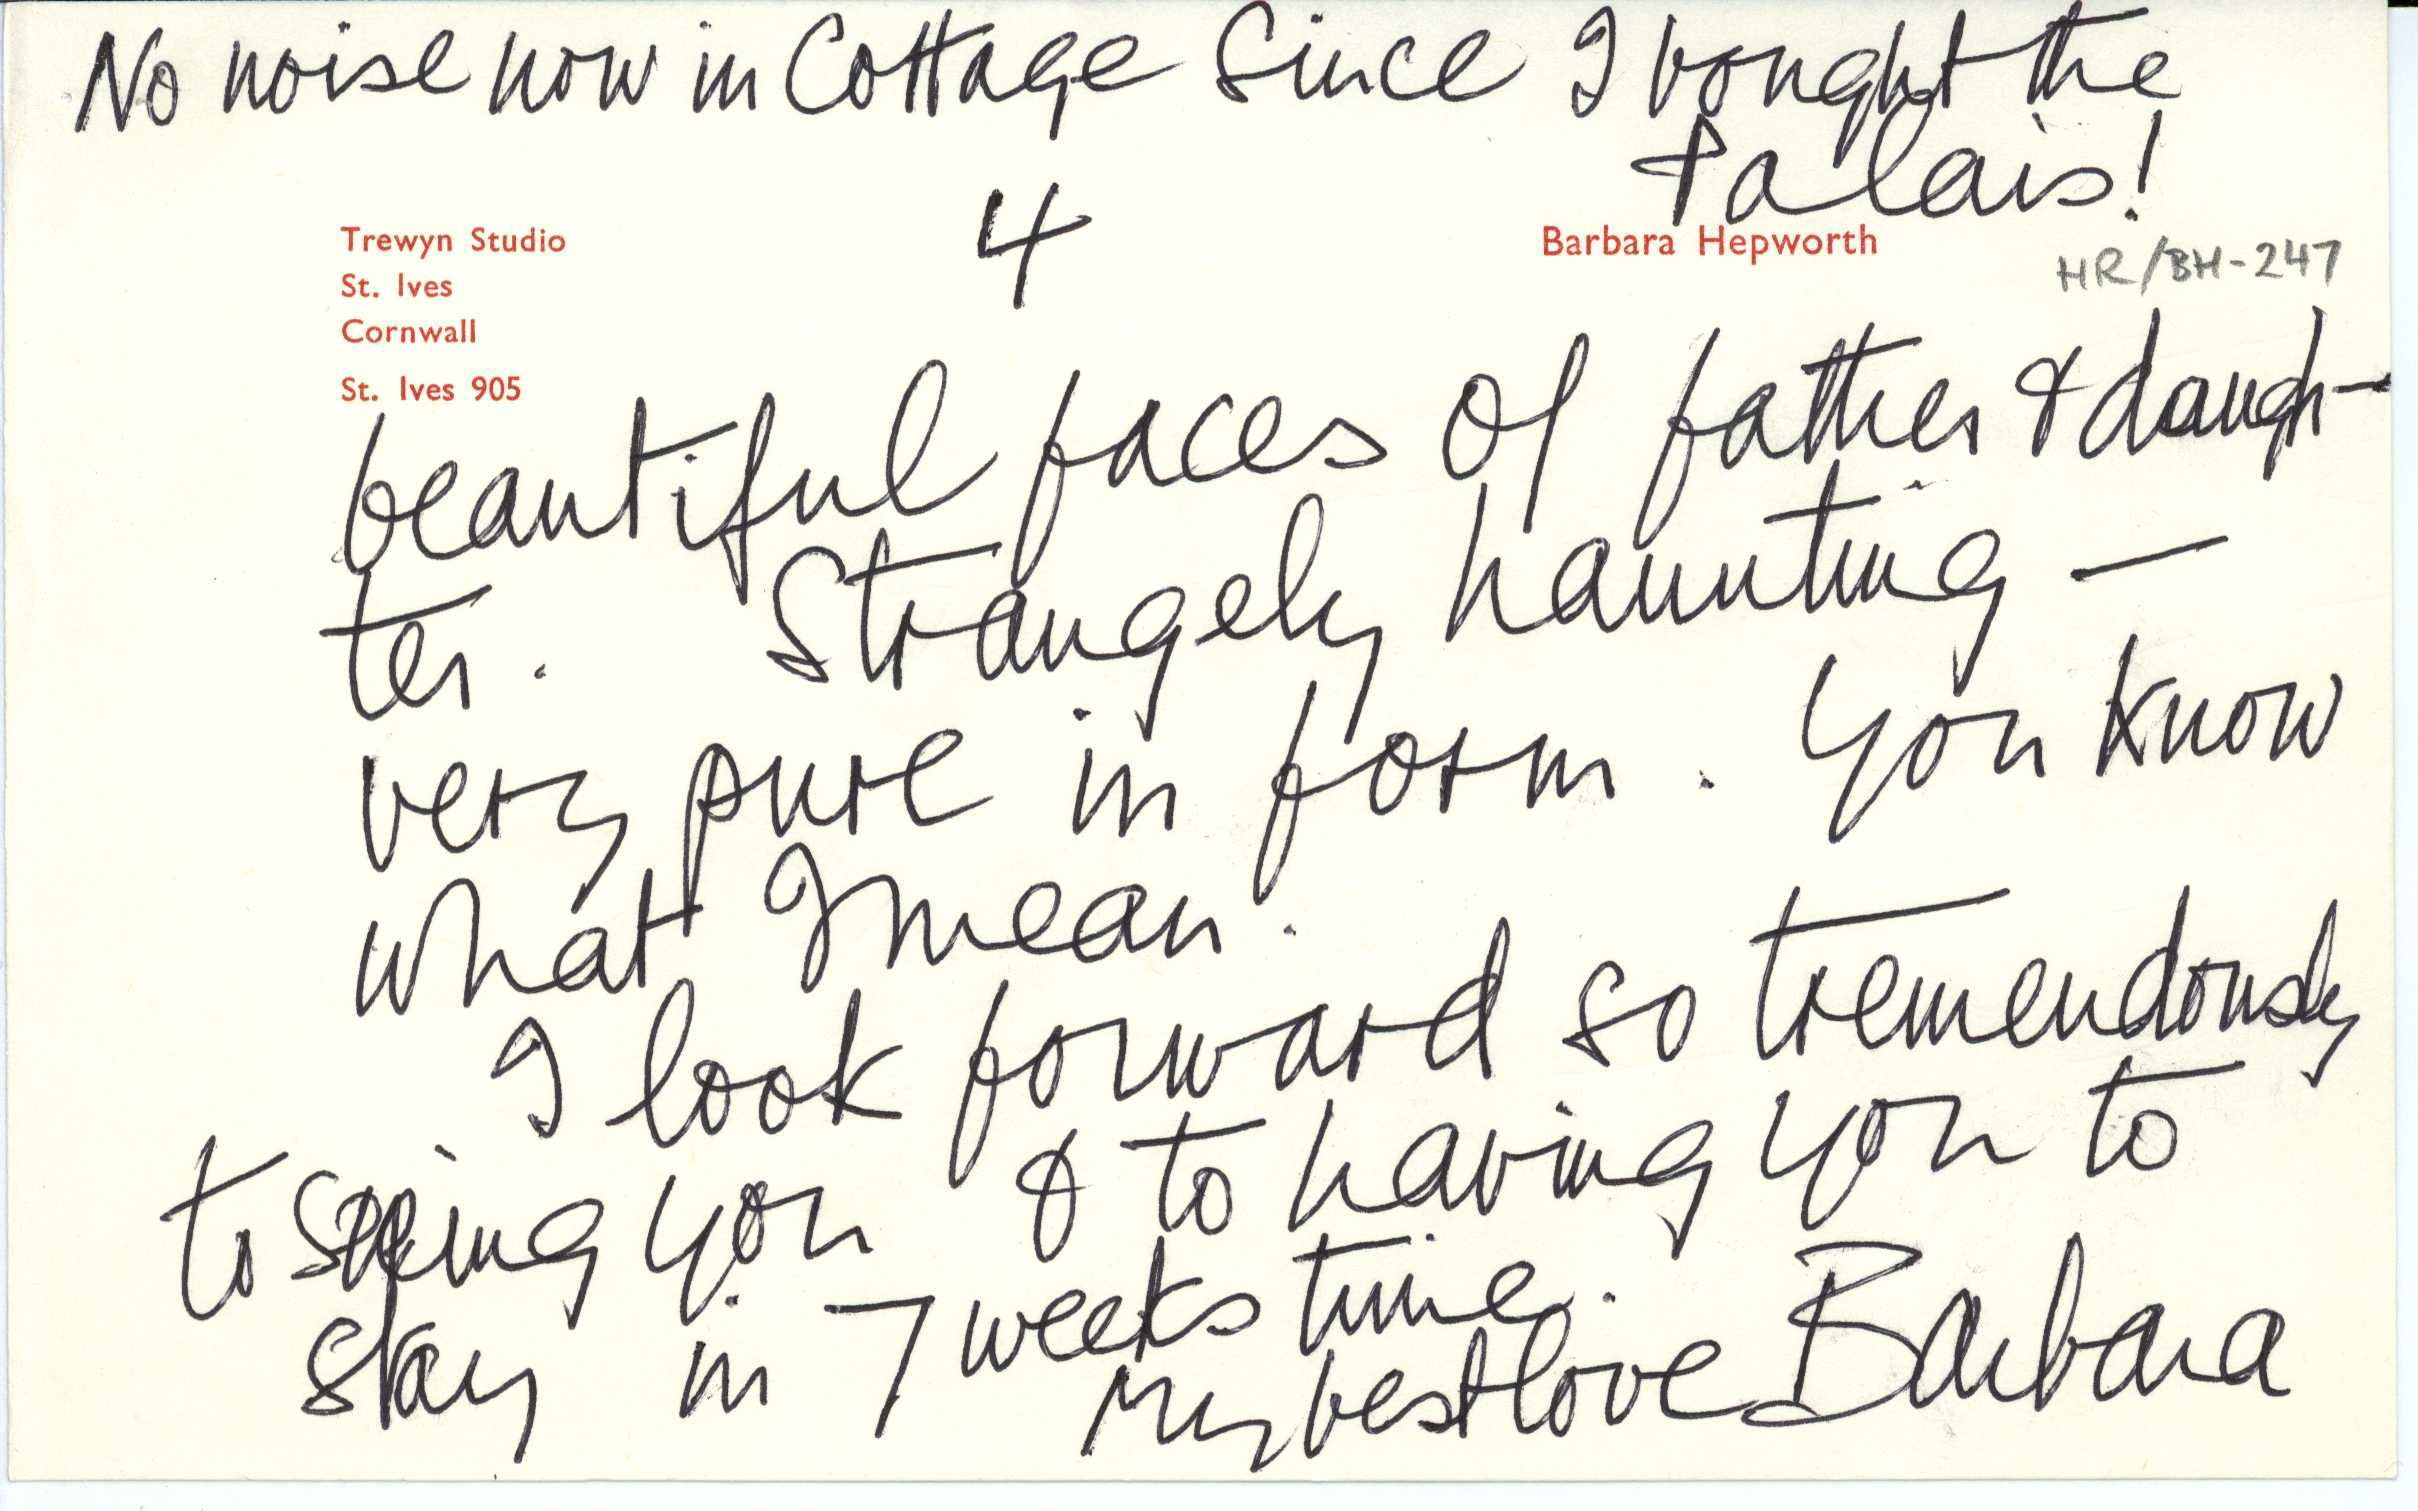 No noise now in Cottage since I bought the
Palais!
4
Trewyn Studio
St. Ives
Cornwall
St. Ives 905
Barbara Hepworth
HR/BH-247
beautiful faces of father & daugh-
ter. Strangely haunting —
very pure in form. You know
what I mean.
I look forward so tremendously
to seeing you & to having you to
stay in 7 weeks time.
My best love Barbara